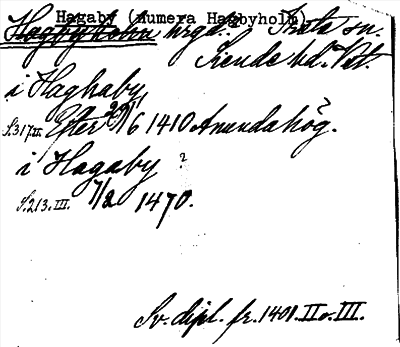 Hagaby (numera Hagbyholm)
Hagbyholm hrgd. Irsta sn.
Siende hd. Vstl.
i Haghaby
S. 317. II. Efter 29/6 1410 Anundahög.
i Hagaby ?
S. 213. III. 7/2 1470.
Sv. dipl. fr. 1401. II o. III.